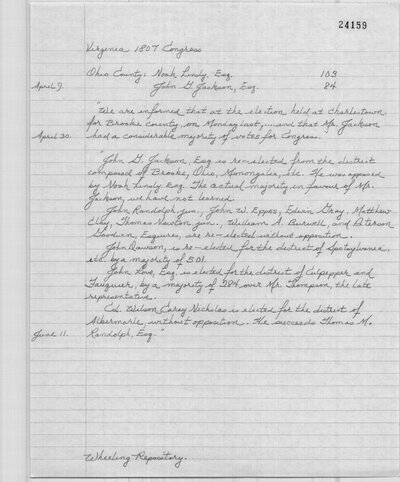 24159
Virginia 1807 Congress
Ohio County: Noah Linsly, Esq. 103
April 9. John G. Jackson, Esq. 84
"We are informed that at the election held at Charlestown
for Brooke county on Monday last, .....and that Mr. Jackson
April 30. had a considerable majority of votes for Congress."
"John G. Jackson, Esq. is re-elected from the district
composed of Brooke, Ohio, Monongalia, etc. He was opposed
by Noah Linsly Esq. The actual majority in favour of Mr.
Jackson, we have not learned.
John Randolph, jun., John W. Eppes, Edwin Gray, Matthew
Clay, Thomas Newton, jun., William A. Burwell, and Peterson
Goodwin, Esquires, are re-elected without opposition.
John Dawson, is re-elected for the district of Spotsylvania,
etc. by a majority of 501.
John Love, Esq. is elected for the district of Culpepper and
Fauquier, by a majority of 284 over Mr. Thompson, the late
representative.
Col. Wilson Carey Nicholas is elected for the district of
Albermarle without opposition. He succeeds Thomas M.
June 11. Randolph, Esq."
Wheeling Repository.